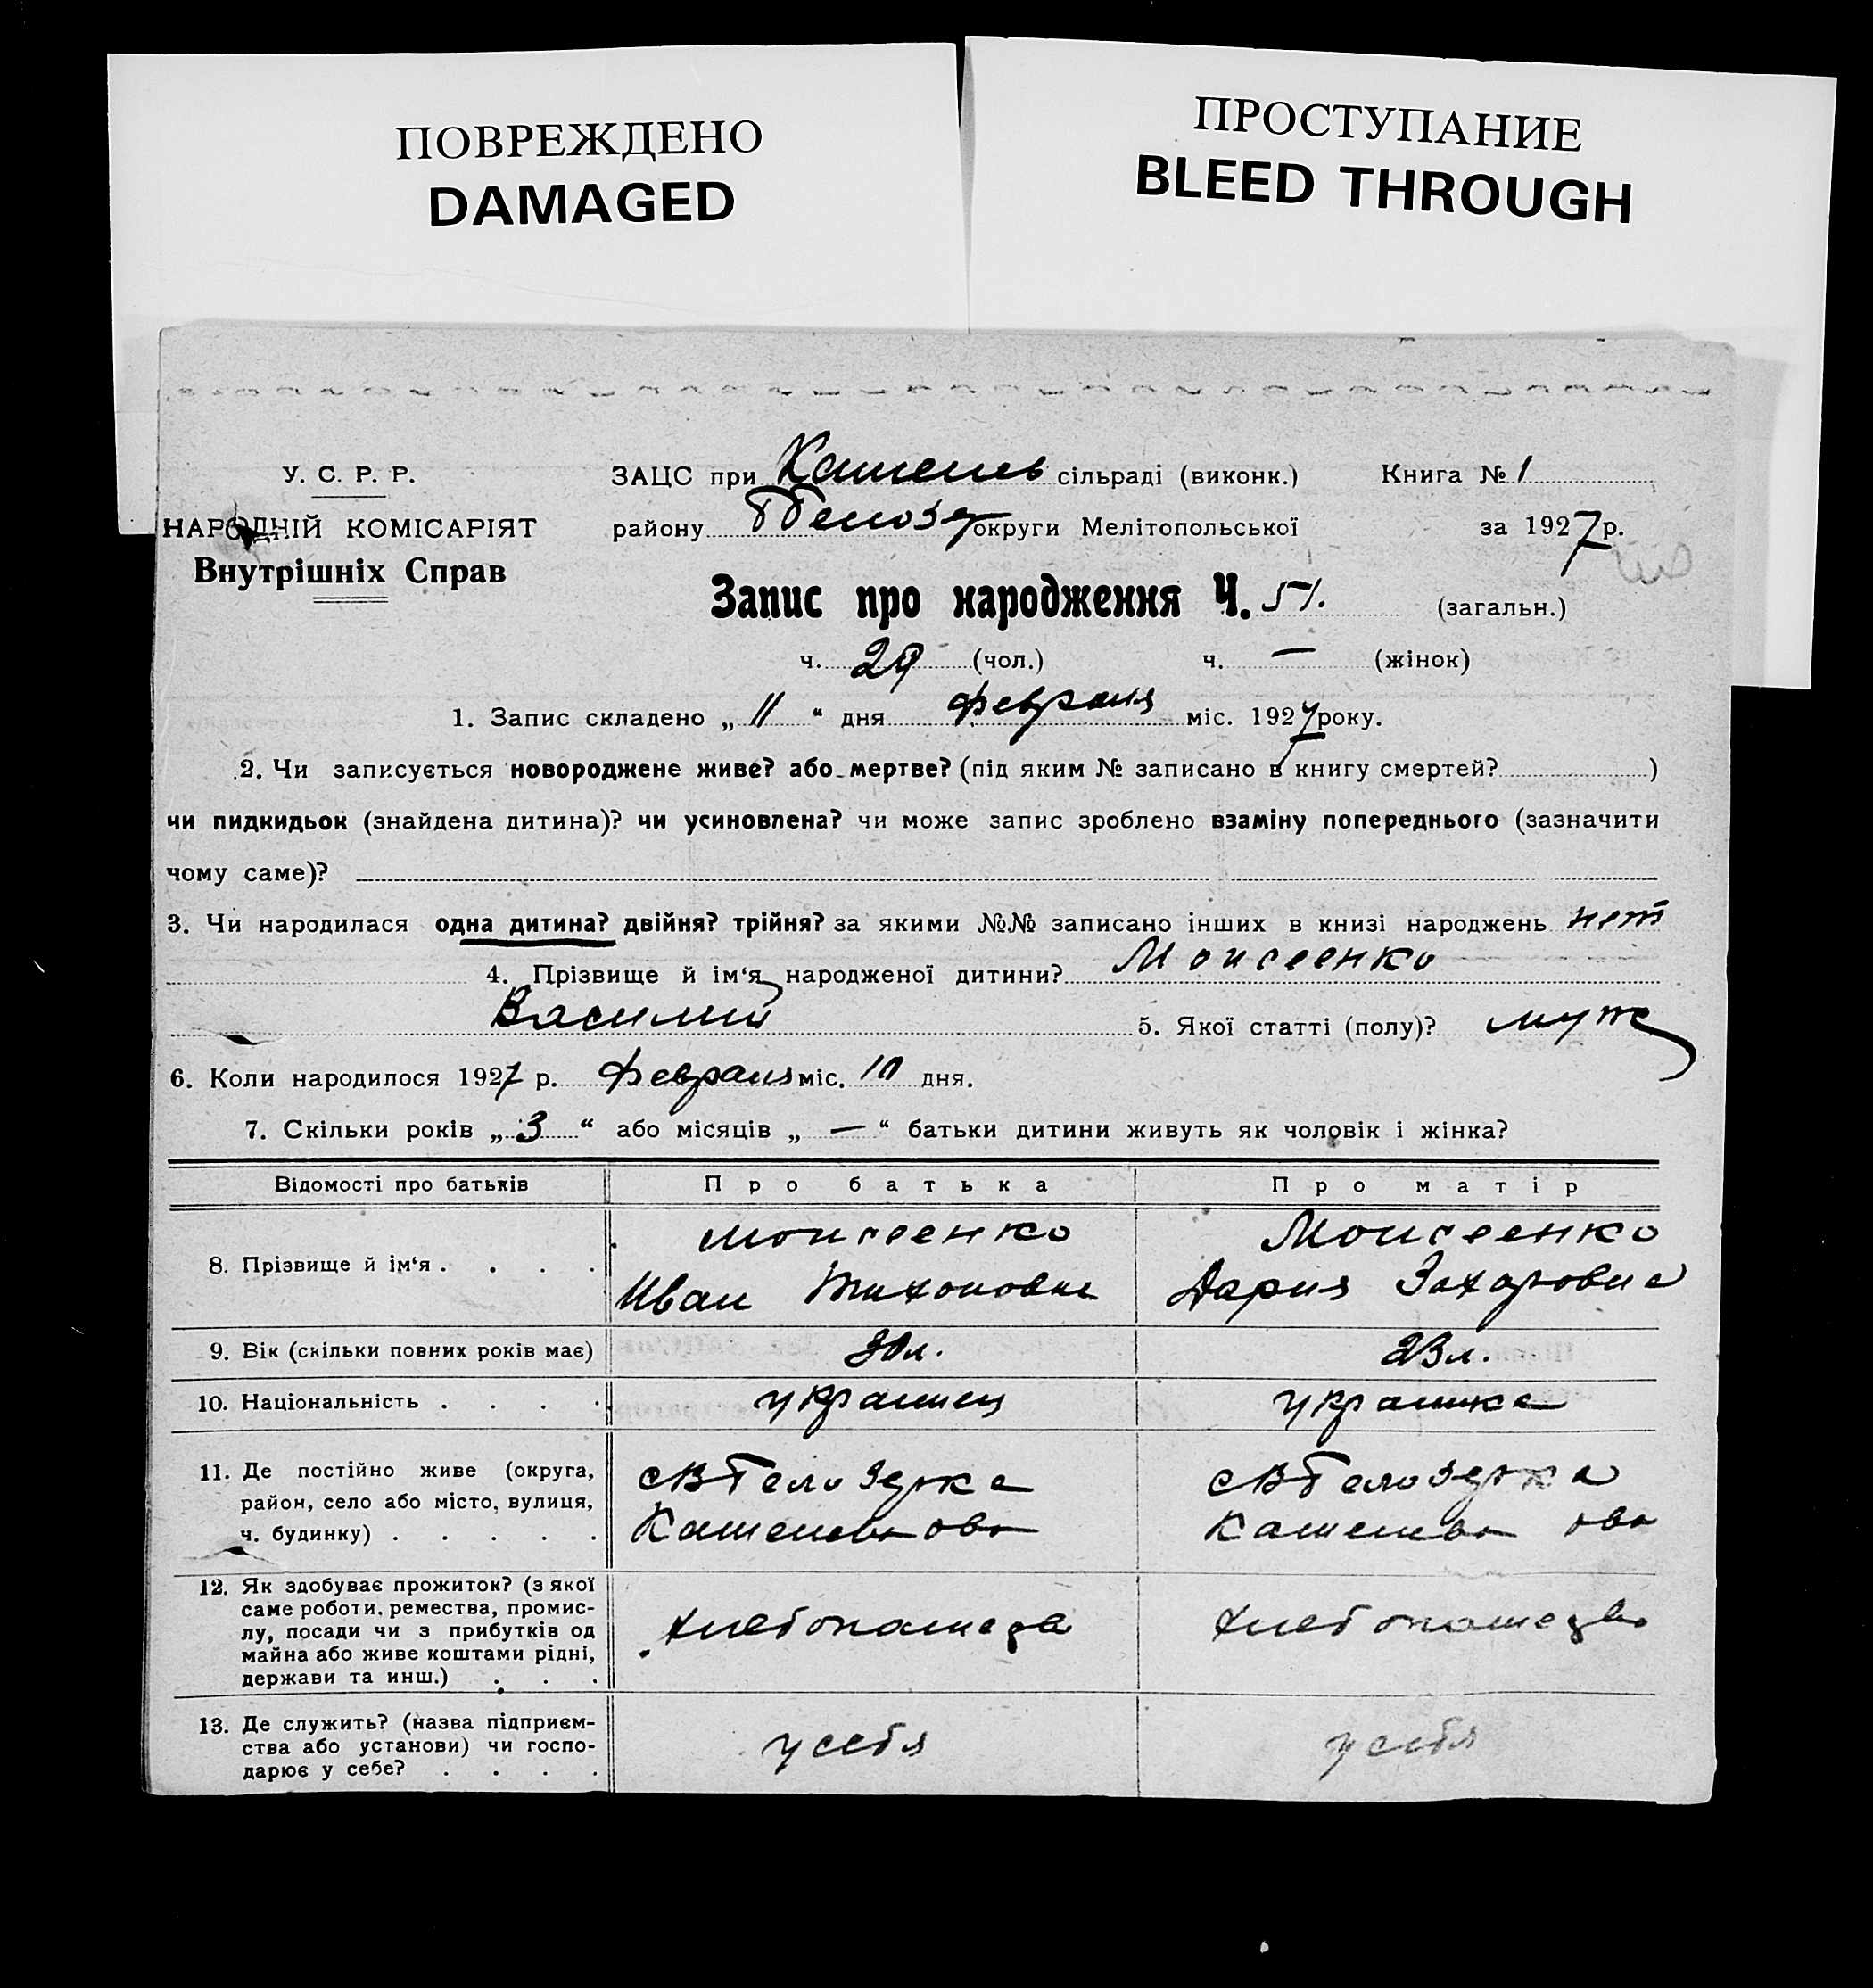 ПОВРЕЖДЕНО
DAMAGED
ПРОСТУПАНИЕ
BLEED THROUGH
У. С. Р. Р.
НАРОДНІЙ КОМІСАРІЯТ
Внутрішніх Справ
ЗАЦС при сільраді (виконк.) Книга № 1
району Белозер округи Мелітопольської за 1927 р.
Запис про народження Ч. 51. (загальн.)
ч. 29 (чол.) ч. — (жінок)
1. Запис складено „ 11 “ дня февраля міс. 1927 року.
2. Чи записується новороджене живе? або мертве? (під яким № записано в книгу смертей? )
чи пидкидьок (знайдена дитина)? чи усиновлена? чи може запис зроблено взаміну попереднього (зазначити
чому саме)?
3. Чи народилася одна дитина? двійня? трійня? за якими №№ записано інших в книзі народжень нет
4. Прізвище й ім‘я народженої дитини? Моисеенко
Василий 5. Якої статті (полу)? муж
6. Коли народилося 1927 р. февраля міс. 10 дня.
7. Скільки років „ 3 “ або місяців „ — “ батьки дитини живуть як чоловік і жінка?
Відомості про батьків Про батька Про матір
8. Прізвище й ім‘я . . . . Моисеенко Иван Тихонович Моисеенко Дария Захаровна
9. Вік (скільки повних років має) 30 л. 23 л.
10. Національність . . . . украинец украинка
11. Де постійно живе (округа,
район, село або місто, вулиця,
ч. будинку) . . . . .
12. Як здобуває прожиток? (з якої
саме роботи, ремества, промис-
лу, посади чи з прибутків од
майна або живе коштами рідні,
держави та инш.) . . .
13. Де служить? (назва підприєм-
ства або установи) чи госпо-
дарює у себе? . . . . у себя у себя